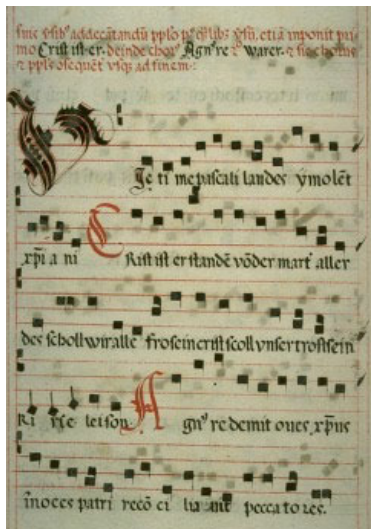 ſiue ꝟſibꝰ addecātandū pplo pꝰ q̄lib; ꝟſū, etiā inponit pri
mo Criſt iſt⸱er⸱ deinde chorꝰ Agnꝰ re ⁊ warer⸱ ⁊ ſic chorus
⁊ pplꝰ oſequēt vſq; ad finem⸱
Victi me paſcali laudes ymolēt
xp̄i a ni Criſt iſt er ſtandē vō der mart aller
des ſcholl wir alle fro ſein criſt ſcoll vnſer troſt ſein
Ki rie leiſon⸱ Agnꝰ re demit oues xp̄us
īnocēs patri recō ci lia uit pecca to res⸱